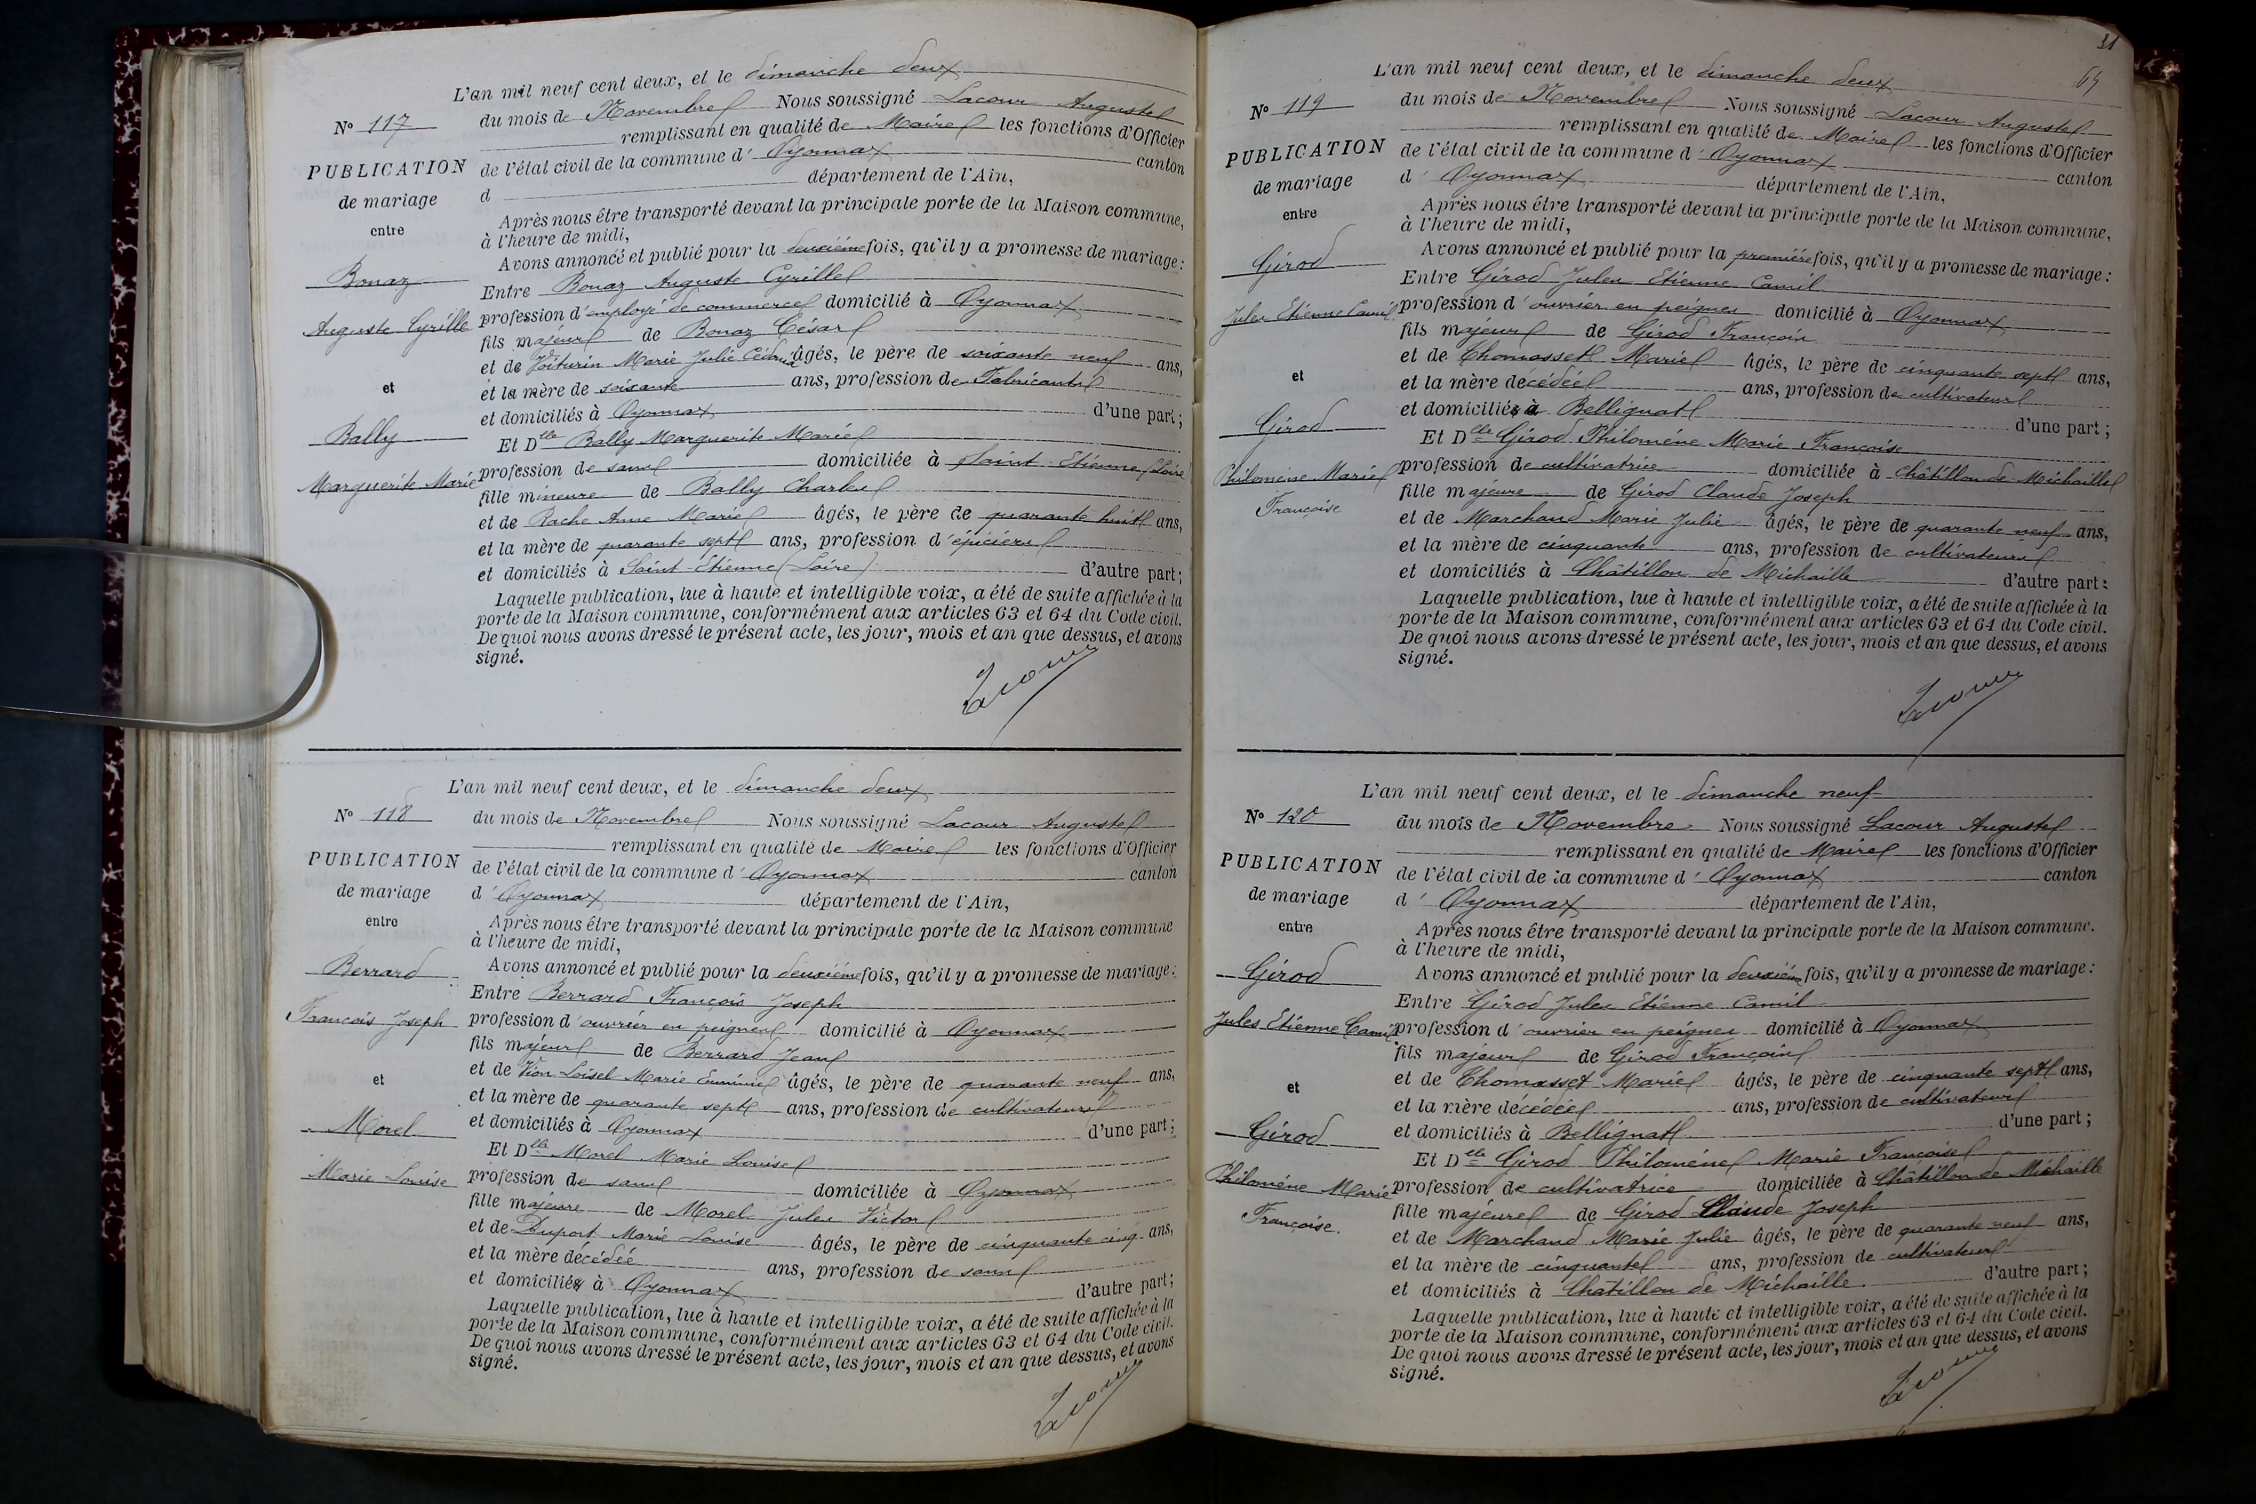 L'an mil neuf cent deux, et le dimanche deux
N° 117
du mois de Novembre Nous soussigné Lacour Auguste
remplissant en qualité de Maire les fonctions d'Officier
PUBLICATION
de l'état civil de la commune d' Oyonnax canton
de mariage
d département de l'Ain,
entre
Après nous être transporté devant la principale porte de la Maison commune,
à l'heure de midi,
Avons annoncé et publié pour la deuxième fois, qu'il y a promesse de mariage :
Bonaz
Entre Bonaz Auguste Cyrille
Auguste Cyrille
profession d'employé de commerce domicilié à Oyonnax
fils majeur de Bonaz César
et de Voiturin Marie Julie âgés, le père de soixante neuf ans,
et
et la mère de soixante ans, profession de Fabricants
et domiciliés à Oyonnax d'une part ;
Bally
Et Dlle Bally Marguerite Marie
Marguerite Marie
profession de sans domiciliée à Saint-Etienne (Loire)
fille mineure de Bally Charles
et de Rache Anne Marie âgés, le père de quarante huit ans,
et la mère de quarante sept ans, profession d'épiciers
et domiciliés à Saint-Etienne (Loire) d'autre part ;
Laquelle publication, lue à haute et intelligible voix, a été de suite affichée à la
porte de la Maison commune, conformément aux articles 63 et 64 du Code civil.
De quoi nous avons dressé le présent acte, les jour, mois et an que dessus, et avons
signé.
Lacour
L'an mil neuf cent deux, et le dimanche deux
N° 118
du mois de Novembre Nous soussigné Lacour Auguste
remplissant en qualité de Maire les fonctions d'Officier
PUBLICATION
de l'état civil de la commune d' Oyonnax canton
de mariage
d' Oyonnax département de l'Ain,
entre
Après nous être transporté devant la principale porte de la Maison commune
à l'heure de midi,
Avons annoncé et publié pour la deuxième fois, qu'il y a promesse de mariage :
Berrard
Entre Berrard François Joseph
François Joseph
profession d'ouvrier en peignes domicilié à Oyonnax
fils majeur de Berrard Jean
et de Vion Loisel Marie âgés, le père de quarante neuf ans,
et
et la mère de quarante sept ans, profession de cultivateurs
et domiciliés à Oyonnax d'une part ;
Morel
Et Dlle Morel Marie Louise
Marie Louise
profession de sans domiciliée à Oyonnax
fille majeure de Morel Jules Victor
et de Dupont Marie Louise âgés, le père de cinquante cinq ans,
et la mère décédée ans, profession de sans
et domiciliés à Oyonnax d'autre part ;
Laquelle publication, lue à haute et intelligible voix, a été de suite affichée à la
porte de la Maison commune, conformément aux articles 63 et 64 du Code civil.
De quoi nous avons dressé le présent acte, les jour, mois et an que dessus, et avons
signé.
Lacour
31
L'an mil neuf cent deux, et le dimanche deux
N° 119
du mois de Novembre Nous soussigné Lacour Auguste
remplissant en qualité de Maire les fonctions d'Officier
PUBLICATION
de l'état civil de la commune d' Oyonnax canton
de mariage
d' Oyonnax département de l'Ain,
entre
Après nous être transporté devant la principale porte de la Maison commune,
à l'heure de midi,
Avons annoncé et publié pour la première fois, qu'il y a promesse de mariage :
Girod
Entre Girod Jules Etienne Camil
Jules Etienne Camil
profession d'ouvrier en peignes domicilié à Oyonnax
fils majeur de Girod François
et de Thomasset Marie âgés, le père de cinquante sept ans,
et
et la mère décédée ans, profession de cultivateur
et domiciliés à Bellignat d'une part ;
Girod
Et Dlle Girod Philomène Marie Françoise
Philomène Marie
Françoise
profession de cultivatrice domiciliée à Châtillon de Michaille
fille majeure de Girod Claude Joseph
et de Marchand Marie Julie âgés, le père de quarante neuf ans,
et la mère de cinquante ans, profession de cultivateurs
et domiciliés à Châtillon de Michaille d'autre part :
Laquelle publication, lue à haute et intelligible voix, a été de suite affichée à la
porte de la Maison commune, conformément aux articles 63 et 64 du Code civil.
De quoi nous avons dressé le présent acte, les jour, mois et an que dessus, et avons
signé.
Lacour
L'an mil neuf cent deux, et le dimanche neuf
N° 120
du mois de Novembre Nous soussigné Lacour Auguste
remplissant en qualité de Maire les fonctions d'Officier
PUBLICATION
de l'état civil de la commune d' Oyonnax canton
de mariage
d' Oyonnax département de l'Ain,
entre
Après nous être transporté devant la principale porte de la Maison commune.
à l'heure de midi,
Avons annoncé et publié pour la deuxième fois, qu'il y a promesse de mariage :
Girod
Entre Girod Jules Etienne Camil
Jules Etienne Camil
profession d'ouvrier en peignes domicilié à Oyonnax
fils majeur de Girod François
et de Thomasset Marie âgés, le père de cinquante sept ans,
et
et la mère décédée ans, profession de cultivateur
et domiciliés à Bellignat d'une part ;
Girod
Et Dlle Girod Philomène Marie Françoise
Philomène Marie
Françoise.
profession de cultivatrice domiciliée à Châtillon de Michaille
fille majeure de Girod Claude Joseph
et de Marchand Marie Julie âgés, le père de quarante neuf ans,
et la mère de cinquante ans, profession de cultivateurs
et domiciliés à Chatillon de Michaille. d'autre part ;
Laquelle publication, lue à haute et intelligible voix, a été de suite affichée à la
porte de la Maison commune, conformément aux articles 63 et 64 du Code civil.
De quoi nous avons dressé le présent acte, les jour, mois et an que dessus, et avons
signé.
Lacour